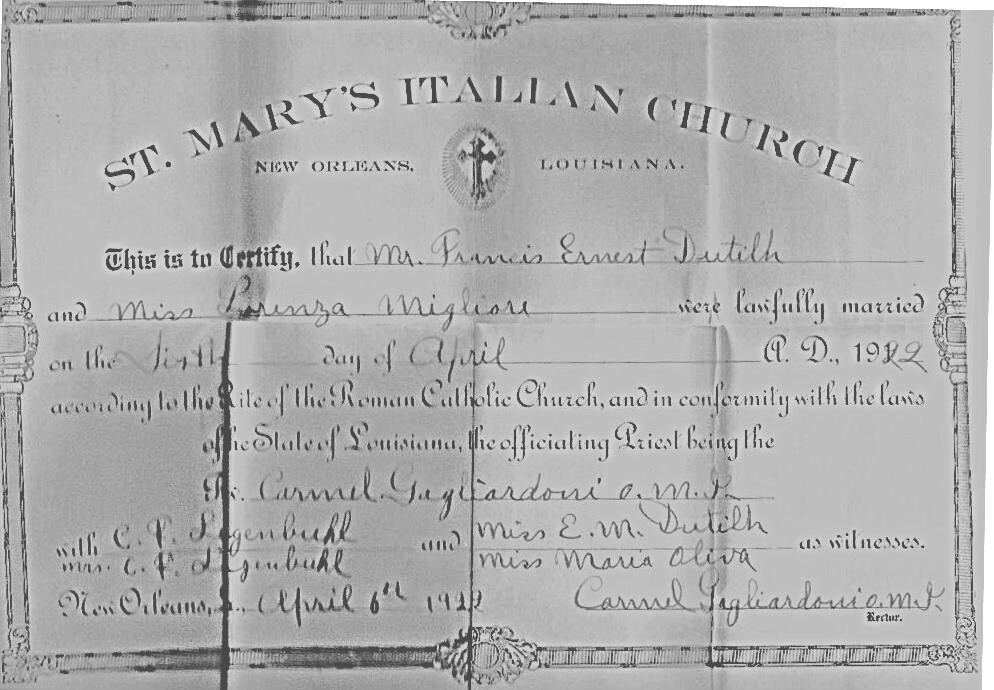 ST. MARY'S ITALIAN CHURCH
NEW ORLEANS. LOUISIANA.
This is to Certify, that Mr. Francis Ernest Dutilh
and Miss Lorenza Migliore were lawfully married
on the Sixth day of April A. D., 1922
according to the Rite of the Roman Catholic Church, and in conformity with the laws
of the State of Louisiana, the officiating Priest being the
Fr. Carmel Gagliardoni O.M.J.
with C. P. Legenbuhl and Miss E. M. Dutilh as witnesses.
Mrs. C. P. Legenbuhl Miss Maria Oliva
New Orleans, La., April 6th 1922 Carmel Gagliardoni O.M.J.
Rector.